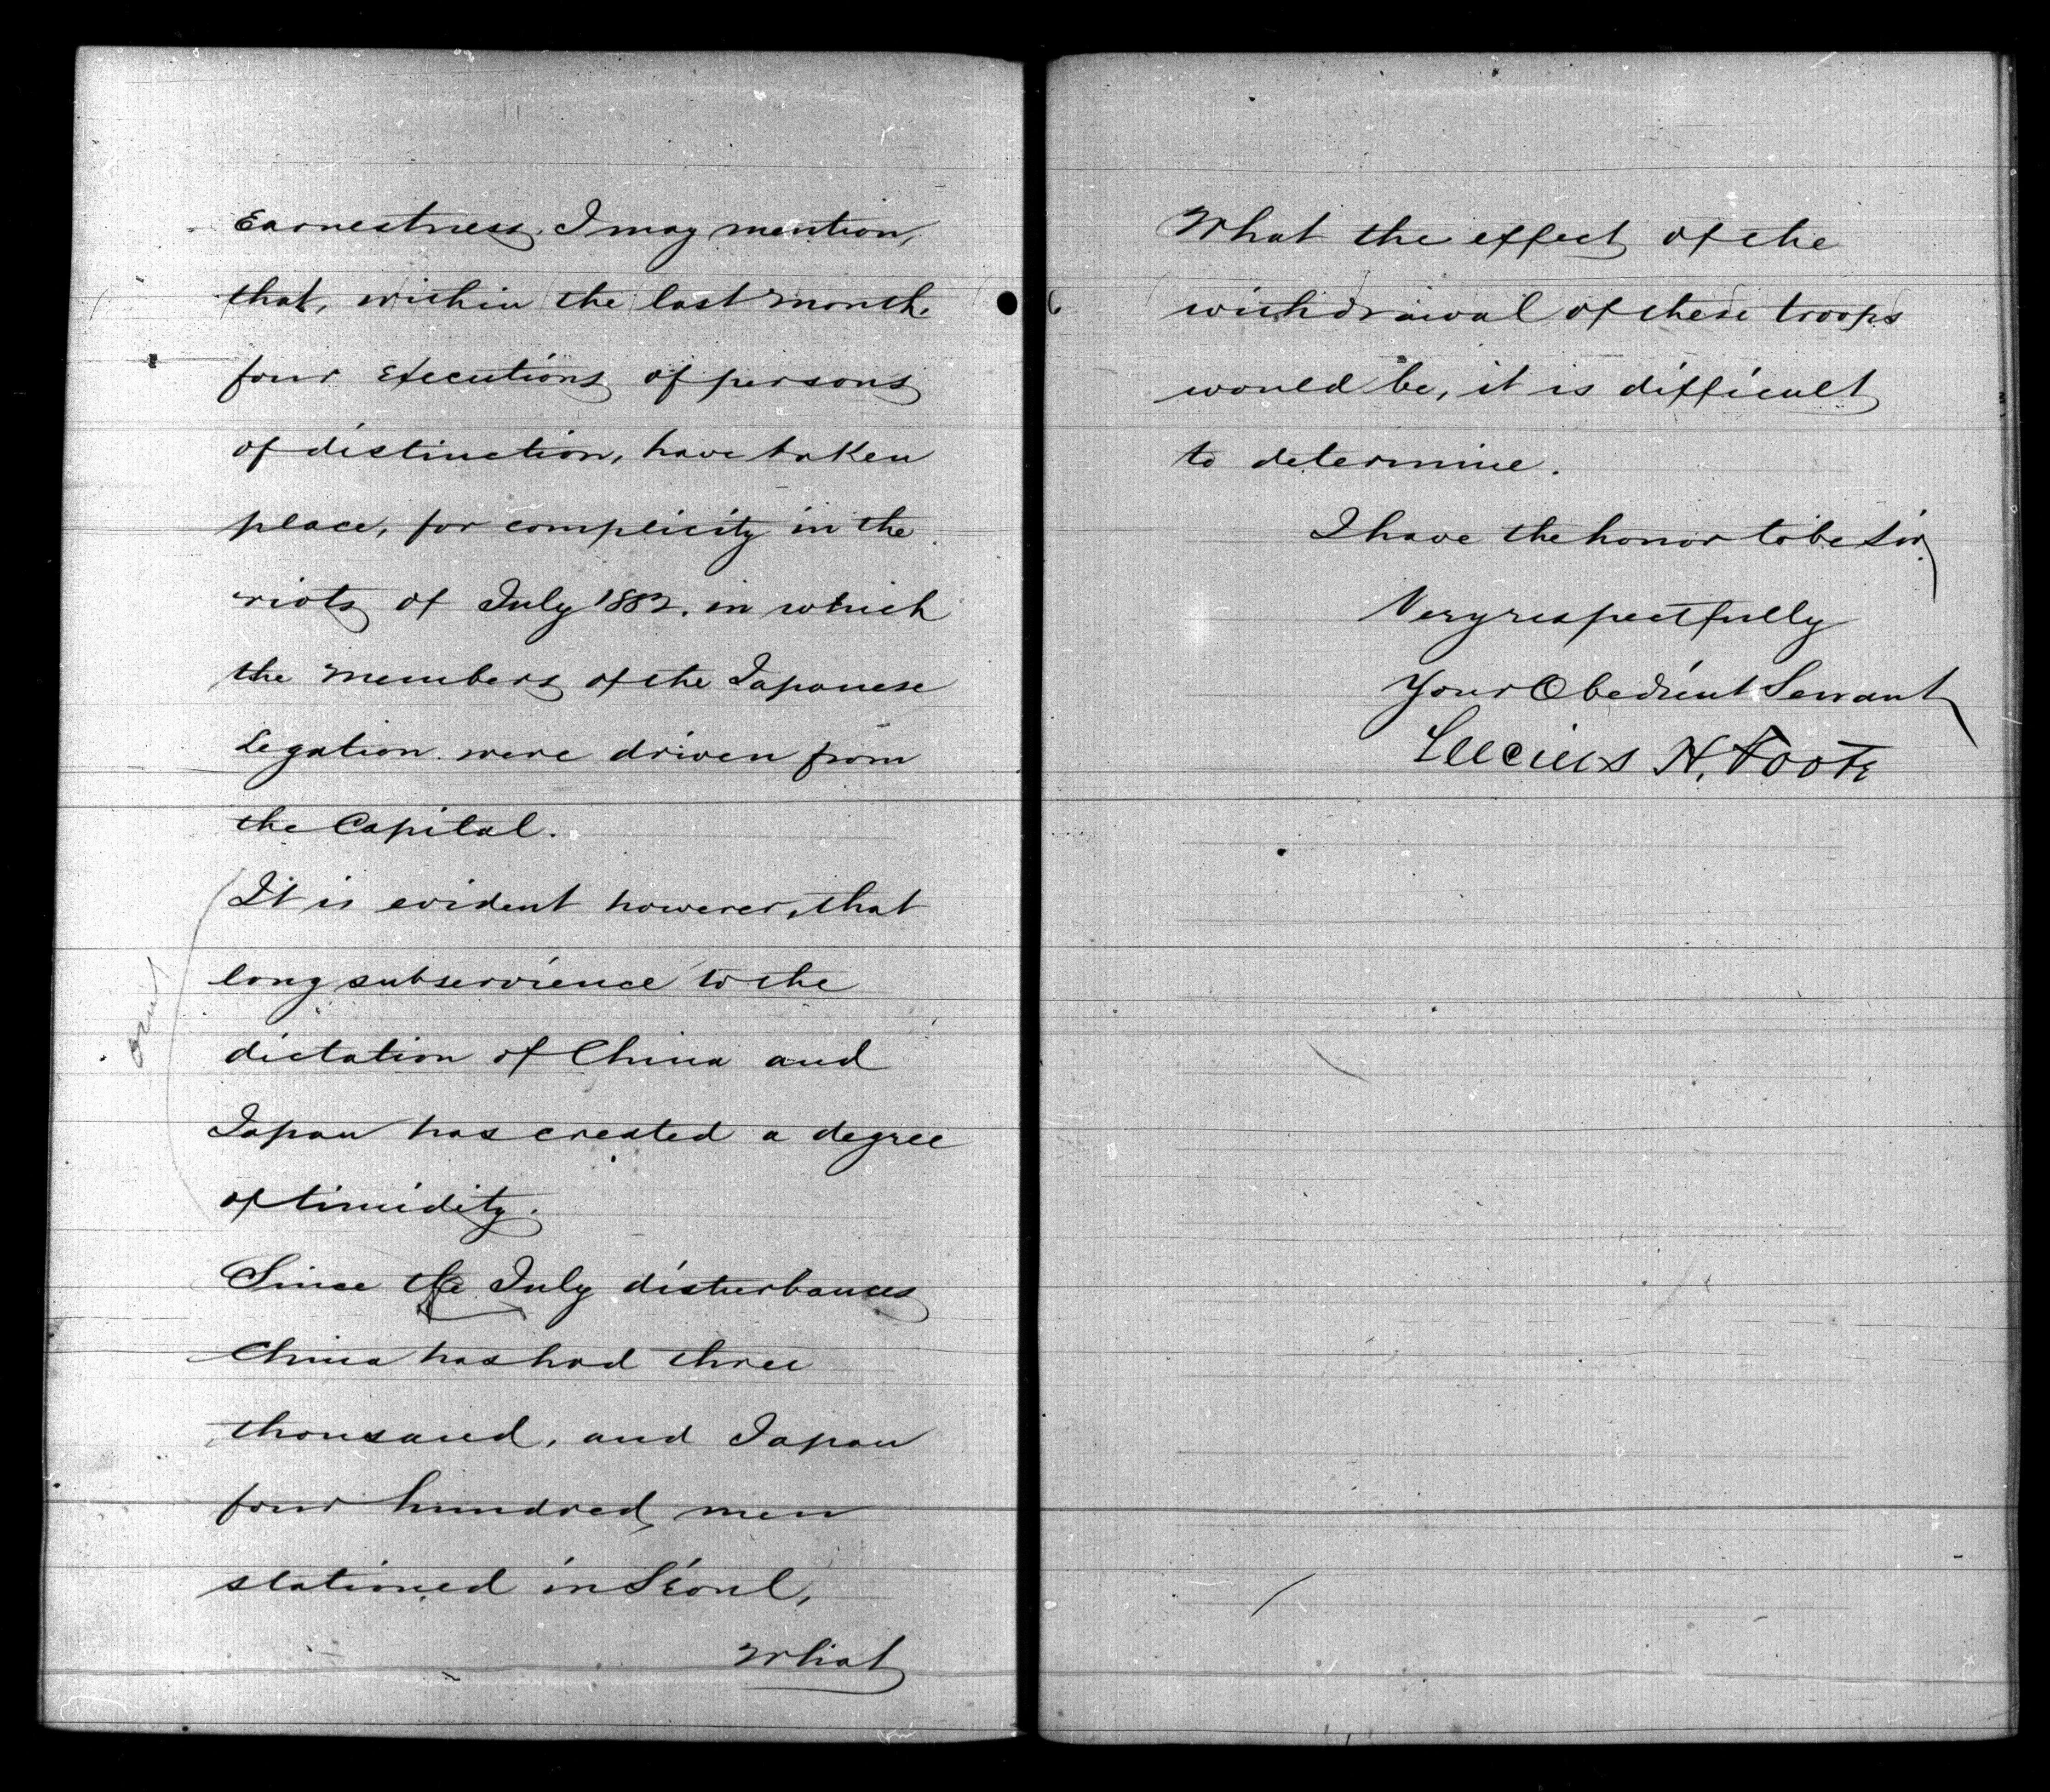 Earnestness. I may mention,
that, within the last month.
four Executions of persons
of distinction, have taken
place, for complicity in the
riots of July 1882. in which
the members of the Japanese
Legation were driven from
the Capital.
It is evident however, that
long subservience to the
dictation of China and
Japan has created a degree
of timidity.
omit
Since the July disturbances
China has had three
thousand, and Japan
four hundred men
stationed in Séoul,
What
What the effect of the
withdrawal of these troops
would be, it is difficult
to determine.
I have the honor to be Sir,
Very respectfully
Your Obedient Servant
Lucius H. Foote